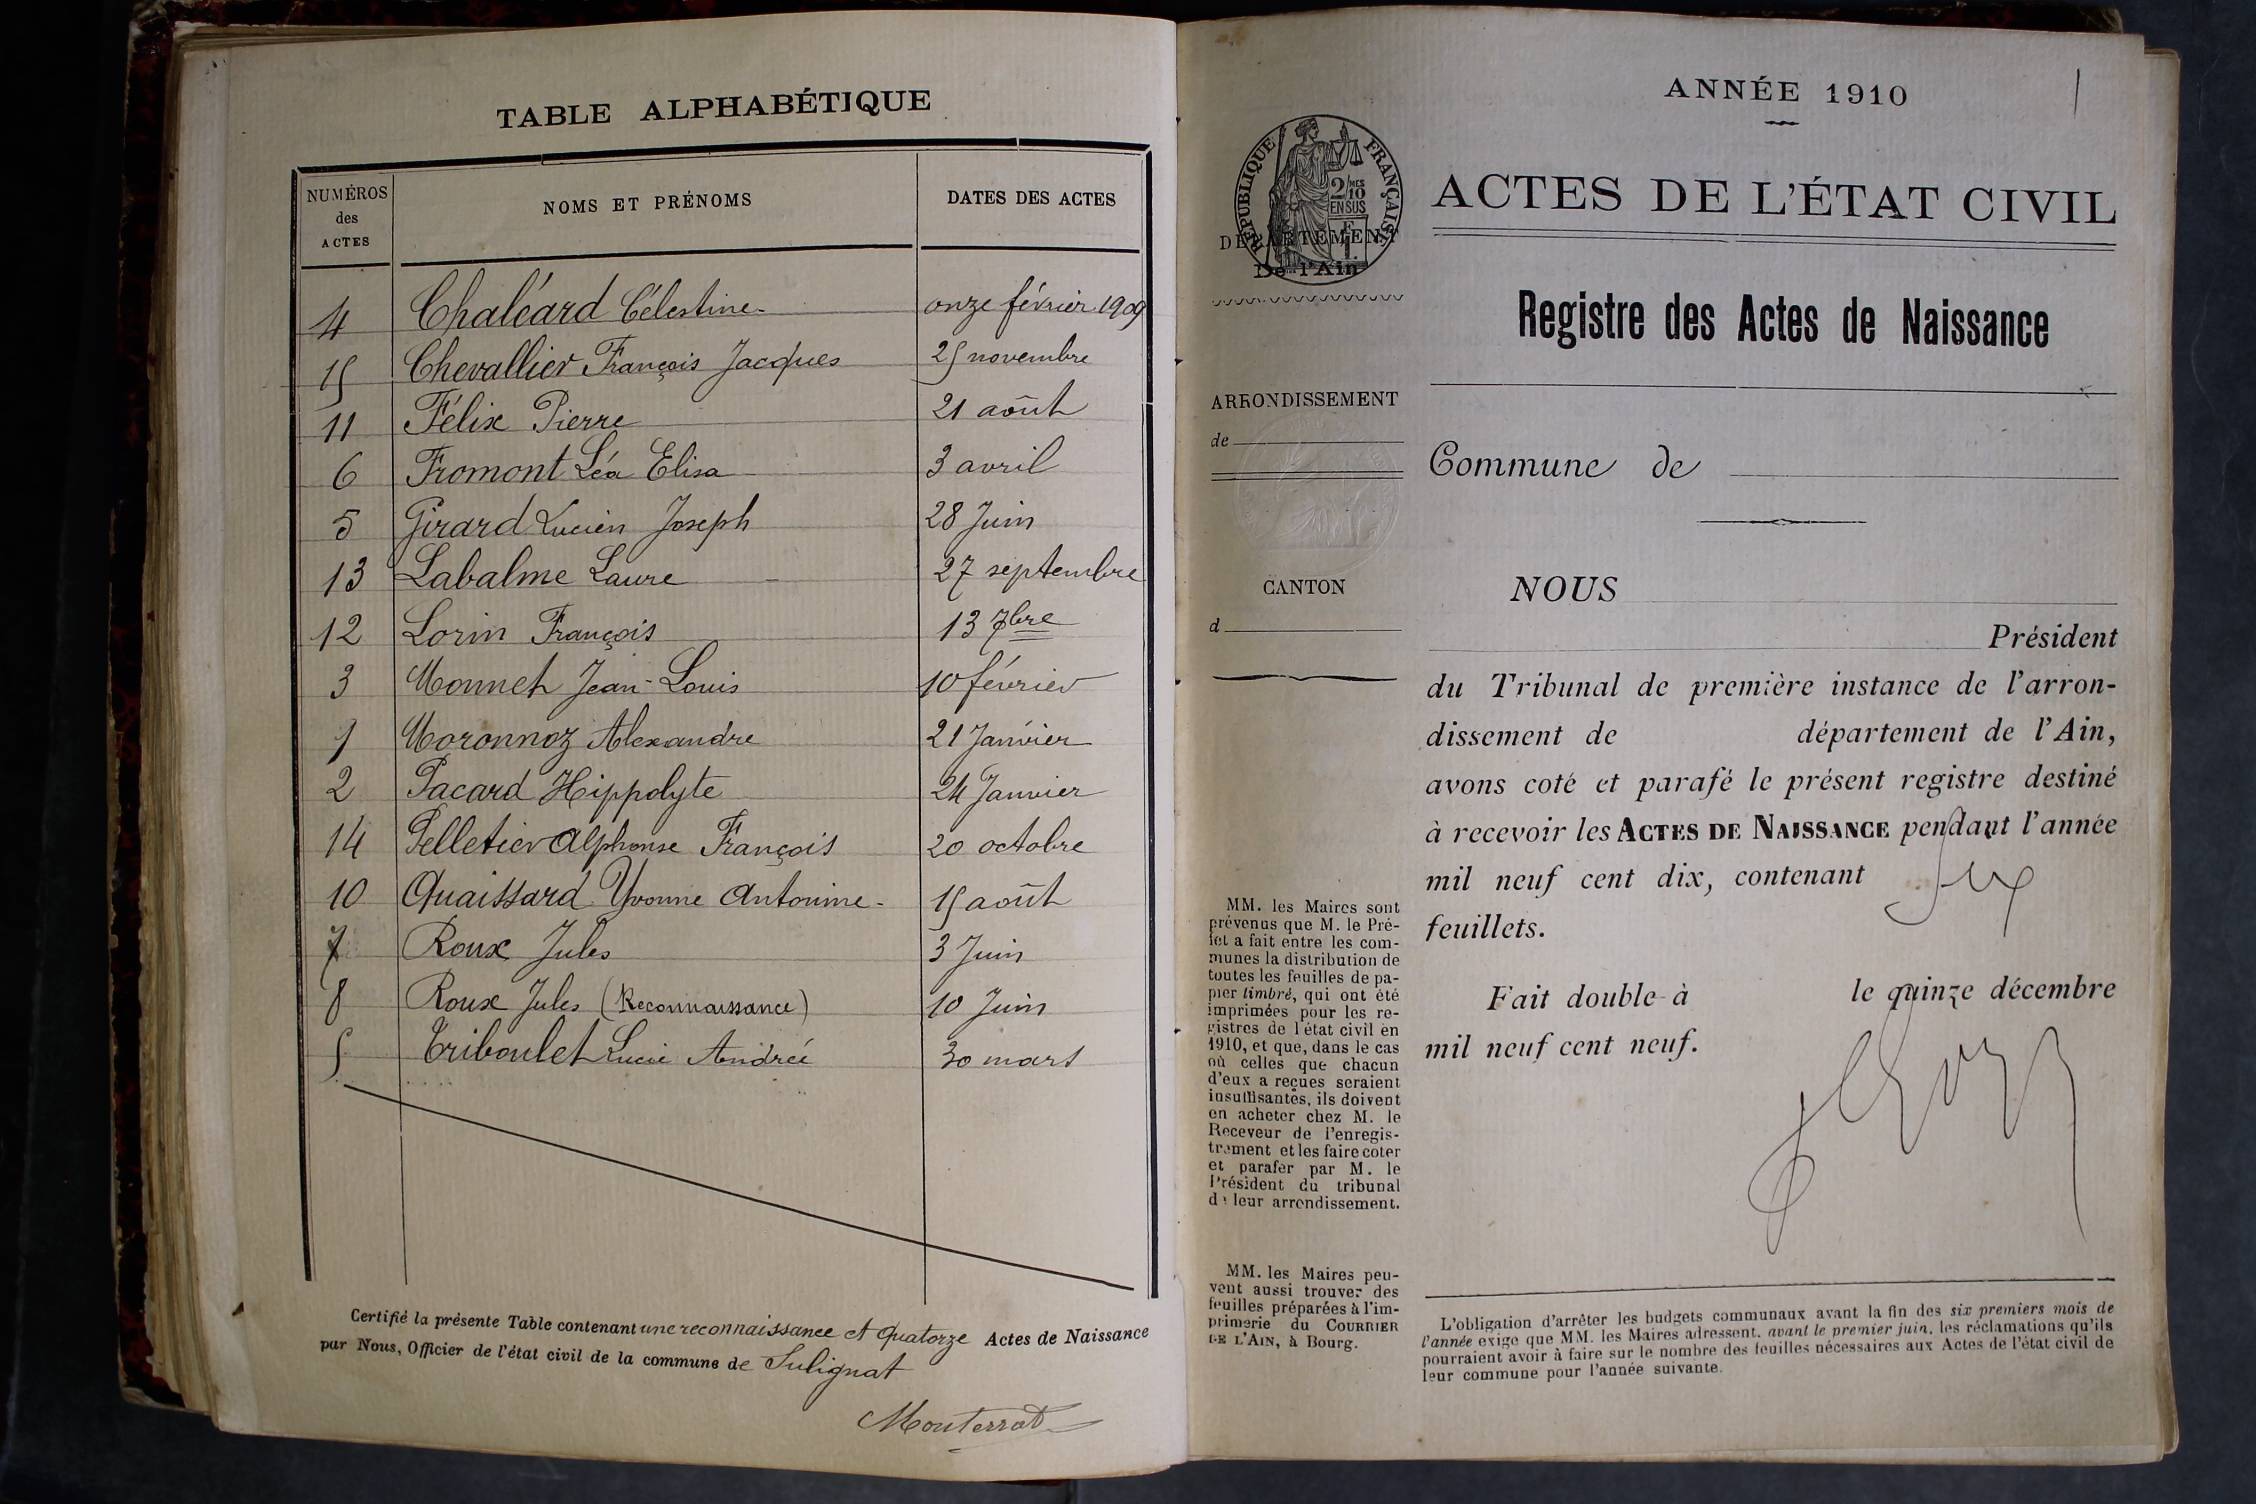 TABLE ALPHABÉTIQUE
NUMÉROS des ACTES NOMS ET PRÉNOMS DATES DES ACTES
4 Chaléard Célestine onze février 1909
15 Chevallier François Jacques 25 novembre
11 Félix Pierre 21 août
6 Fromont Léa Elisa 3 avril
5 Girard Lucien Joseph 28 Juin
13 Labalme Laure 27 septembre
12 Lorin François 13 7bre
3 Monnet Jean-Louis 10 février
1 Moronnoz Alexandre 21 Janvier
2 Pacard Hippolyte 24 Janvier
14 Pelletier Alphonse François 20 octobre
10 Quaissard Yvonne Antonine 15 août
7 Roux Jules 3 Juin
8 Roux Jules (Reconnaissance) 10 Juin
5 Triboulet Lucie Andrée 30 mars
Certifié la présente Table contenant une reconnaissance et quatorze Actes de Naissance
par Nous, Officier de l'état civil de la commune de Sulignat
Monterrat
1
ANNÉE 1910
RÉPUBLIQUE FRANÇAISE
2/MES
10
EN SUS
DÉPARTEMENT
De l'Ain
ACTES DE L'ÉTAT CIVIL
Registre des Actes de Naissance
ARRONDISSEMENT
de
CANTON
d
MM. les Maires sont
prévenus que M. le Pré-
fet a fait entre les com-
munes la distribution de
toutes les feuilles de pa-
pier timbré, qui ont été
imprimées pour les re-
gistres de l'état civil en
1910, et que, dans le cas
où celles que chacun
d'eux a reçues seraient
insuffisantes, ils doivent
en acheter chez M. le
Receveur de l'enregis-
trement et les faire coter
et parafer par M. le
Président du tribunal
de leur arrondissement.
MM. les Maires peu-
vent aussi trouver des
feuilles préparées à l'im-
primerie du COURRIER
DE L'AIN, à Bourg.
Commune de
NOUS
Président
du Tribunal de première instance de l'arron-
dissement de département de l'Ain,
avons coté et parafé le présent registre destiné
à recevoir les ACTES DE NAISSANCE pendant l'année
mil neuf cent dix, contenant six
feuillets.
Fait double à le quinze décembre
mil neuf cent neuf.
L'obligation d'arrêter les budgets communaux avant la fin des six premiers mois de
l'année exige que MM. les Maires adressent, avant le premier juin, les réclamations qu'ils
pourraient avoir à faire sur le nombre des feuilles nécessaires aux Actes de l'état civil de
leur commune pour l'année suivante.